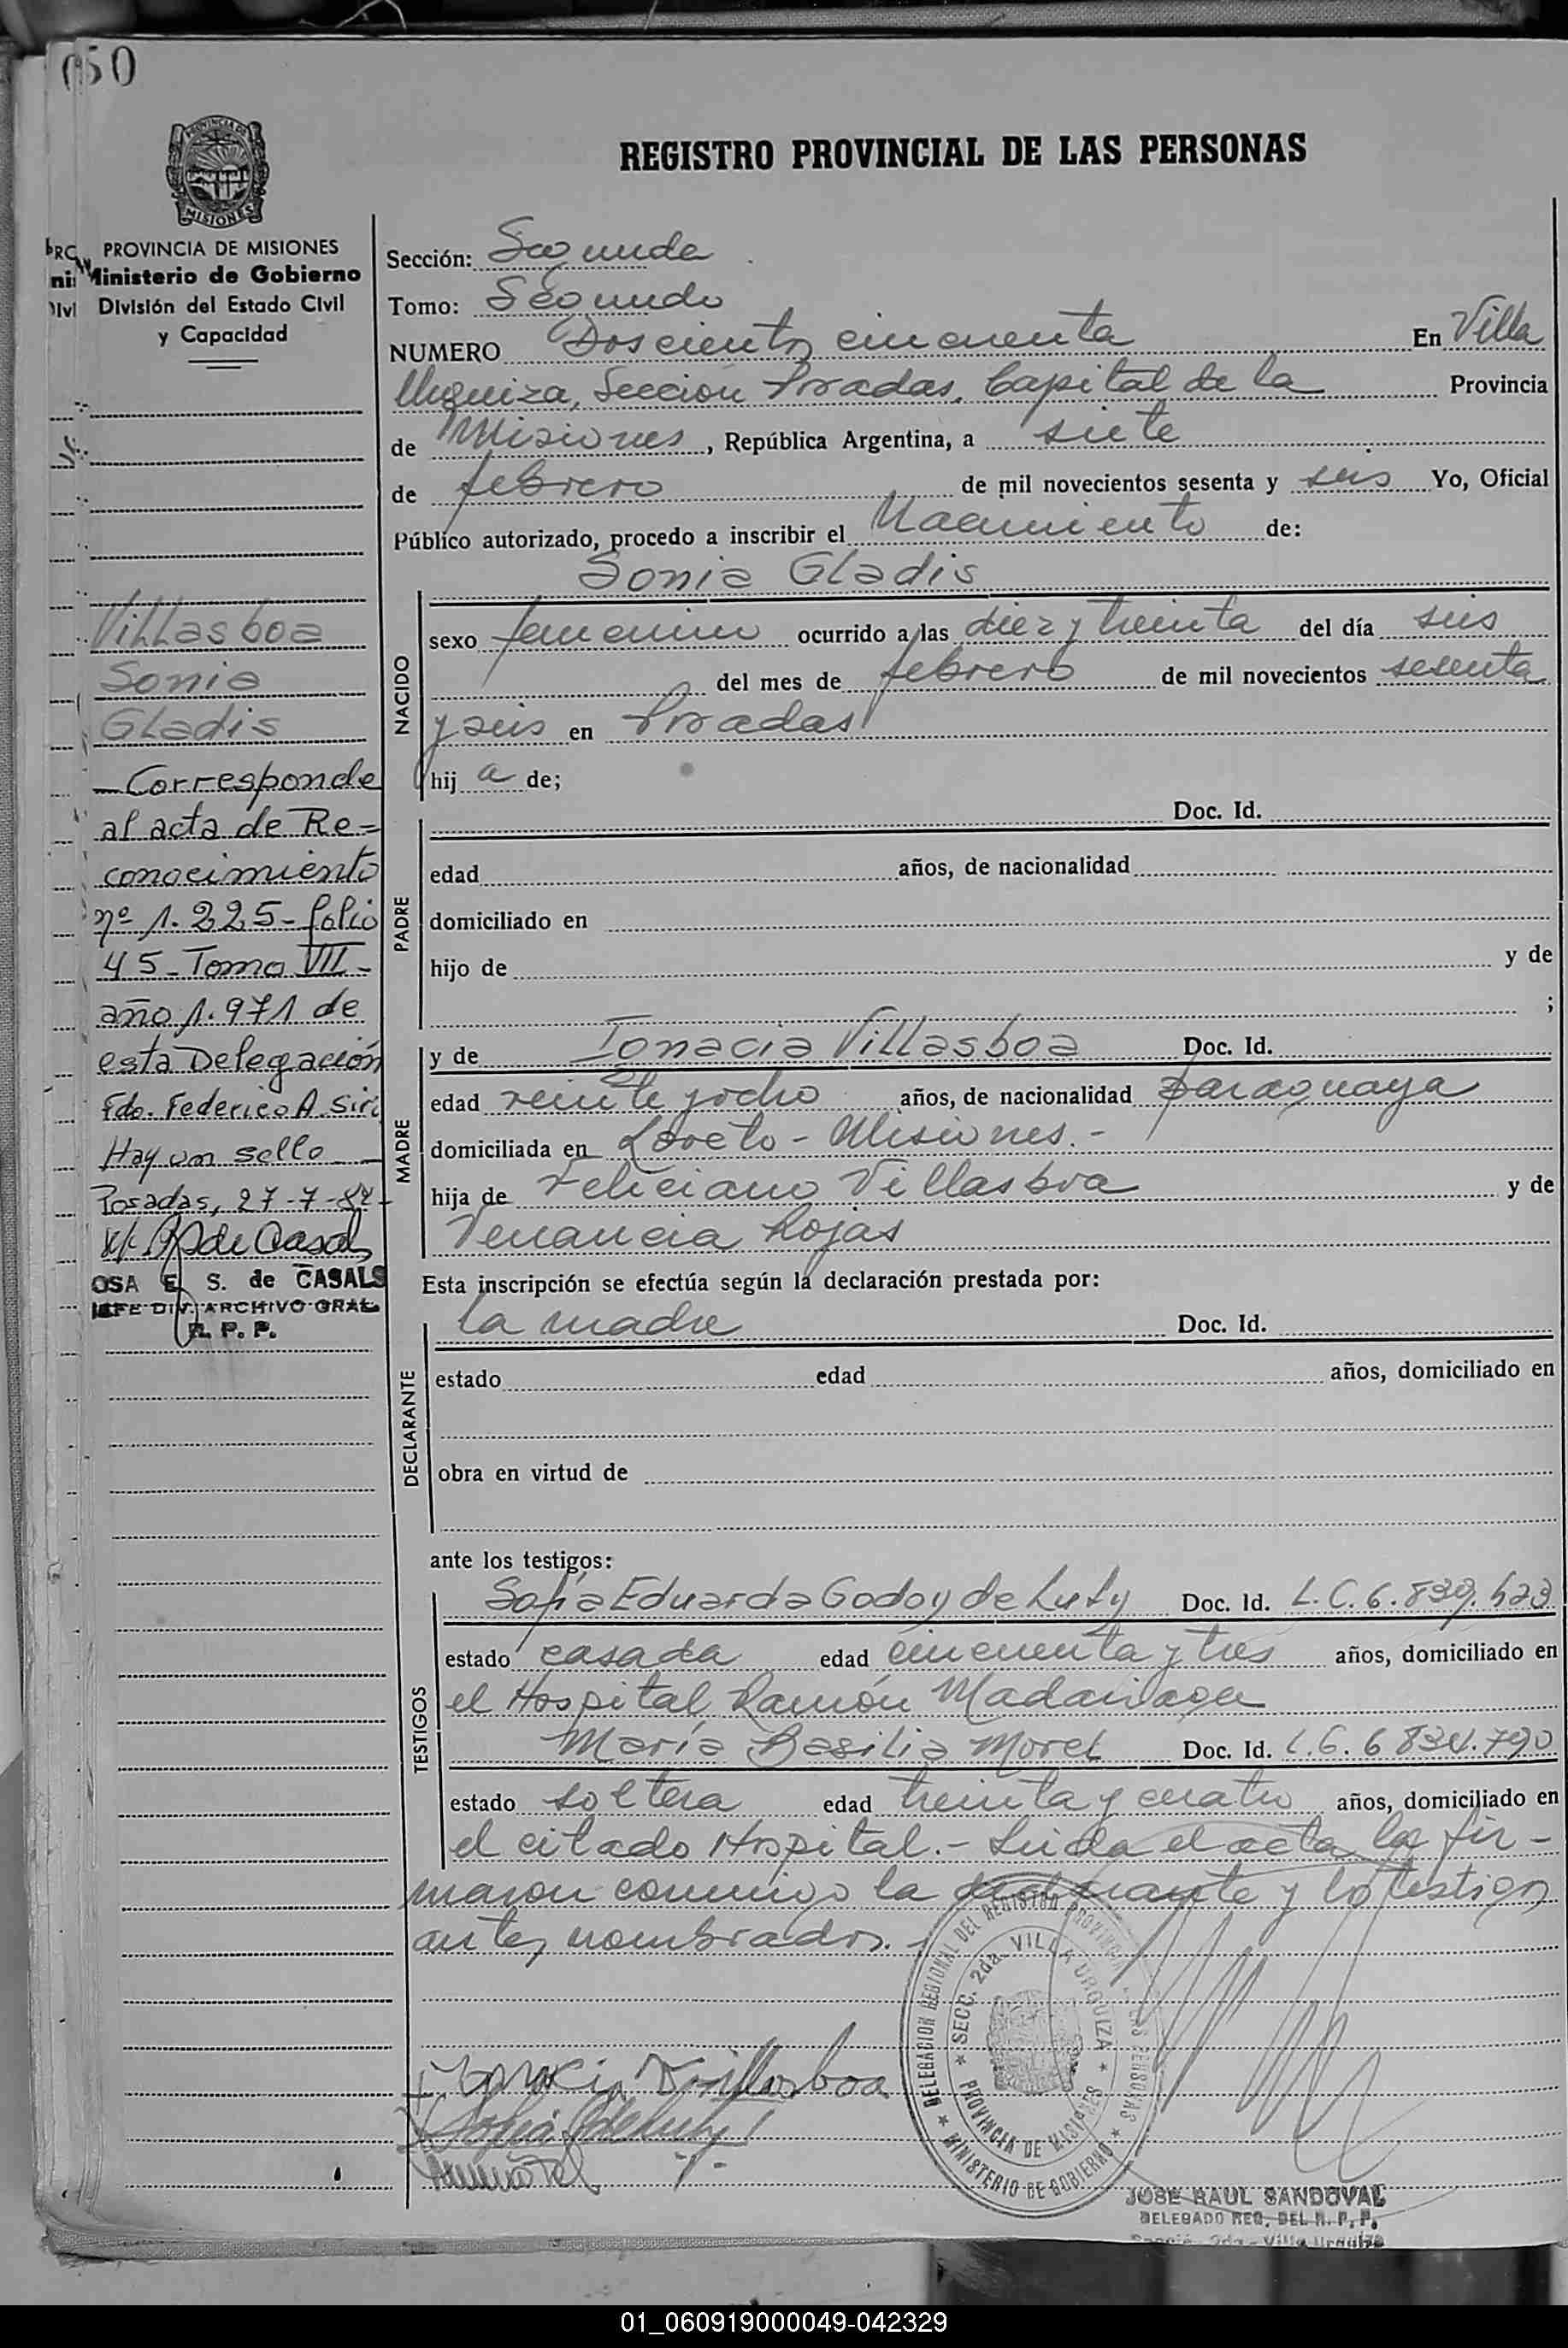 050
PROVINCIA DE
MISIONES
REGISTRO PROVINCIAL DE LAS PERSONAS
PROVINCIA DE MISIONES
Ministerio de Gobierno
División del Estado Civil
y Capacidad
Sección: Segunda
Tomo: Segundo
NUMERO Doscientos cincuenta En Villa
Urquiza, Sección Posadas, Capital de la Provincia
de Misiones, República Argentina, a siete
de febrero de mil novecientos sesenta y seis Yo, Oficial
Público autorizado, procedo a inscribir el Nacimiento de:
Villasboa
Sonia
Gladis
Corresponde
al acta de Re-
conocimiento
nº 1.225- folio
45-Tomo VII-
año 1.971 de
esta Delegación
Fdo. Federico A. Siri
Hay un sello
Posadas, 27-7-84-
de Casals
OSA E. S. de CASALS
JEFE DIV. ARCHIVO GRAL
R. P. P.
NACIDO
Sonia Gladis
sexo femenino ocurrido a las diez y treinta del día seis
del mes de febrero de mil novecientos sesenta
y seis en Posadas
hij a de;
PADRE
Doc. Id.
edad años, de nacionalidad
domiciliado en
hijo de y de
;
MADRE
y de Ignacia Villasboa Doc. Id.
edad veinte y ocho años, de nacionalidad paraguaya
domiciliada en Loreto - Misiones.-
hija de Feliciano Villasboa y de
Venancia Rojas
Esta inscripción se efectúa según la declaración prestada por:
DECLARANTE
la madre Doc. Id.
estado edad años, domiciliado en
obra en virtud de
ante los testigos:
TESTIGOS
Sofia Eduarda Godoy de Luty Doc. Id. L.C. 6.839.523
estado casada edad cincuenta y tres años, domiciliado en
el Hospital Ramón Madariaga
María Basilia Morel Doc. Id. L.C. 6 834.790
estado soltera edad treinta y cuatro años, domiciliado en
el citado Hospital.- Leida el acta la fir-
maron conmigo la declarante y los testigos
antes nombrados.-
Ignacia Villasboa
DELEGACION REGIONAL DEL REGISTRO PROVINCIAL DE LAS PERSONAS
SECC. 2da. VILLA URQUIZA
PROVINCIA DE MISIONES
MINISTERIO DE GOBIERNO
JOSE RAUL SANDOVAL
DELEGADO REG. DEL R. P. P.
Sección 2da - Villa Urquiza
01_060919000049-042329